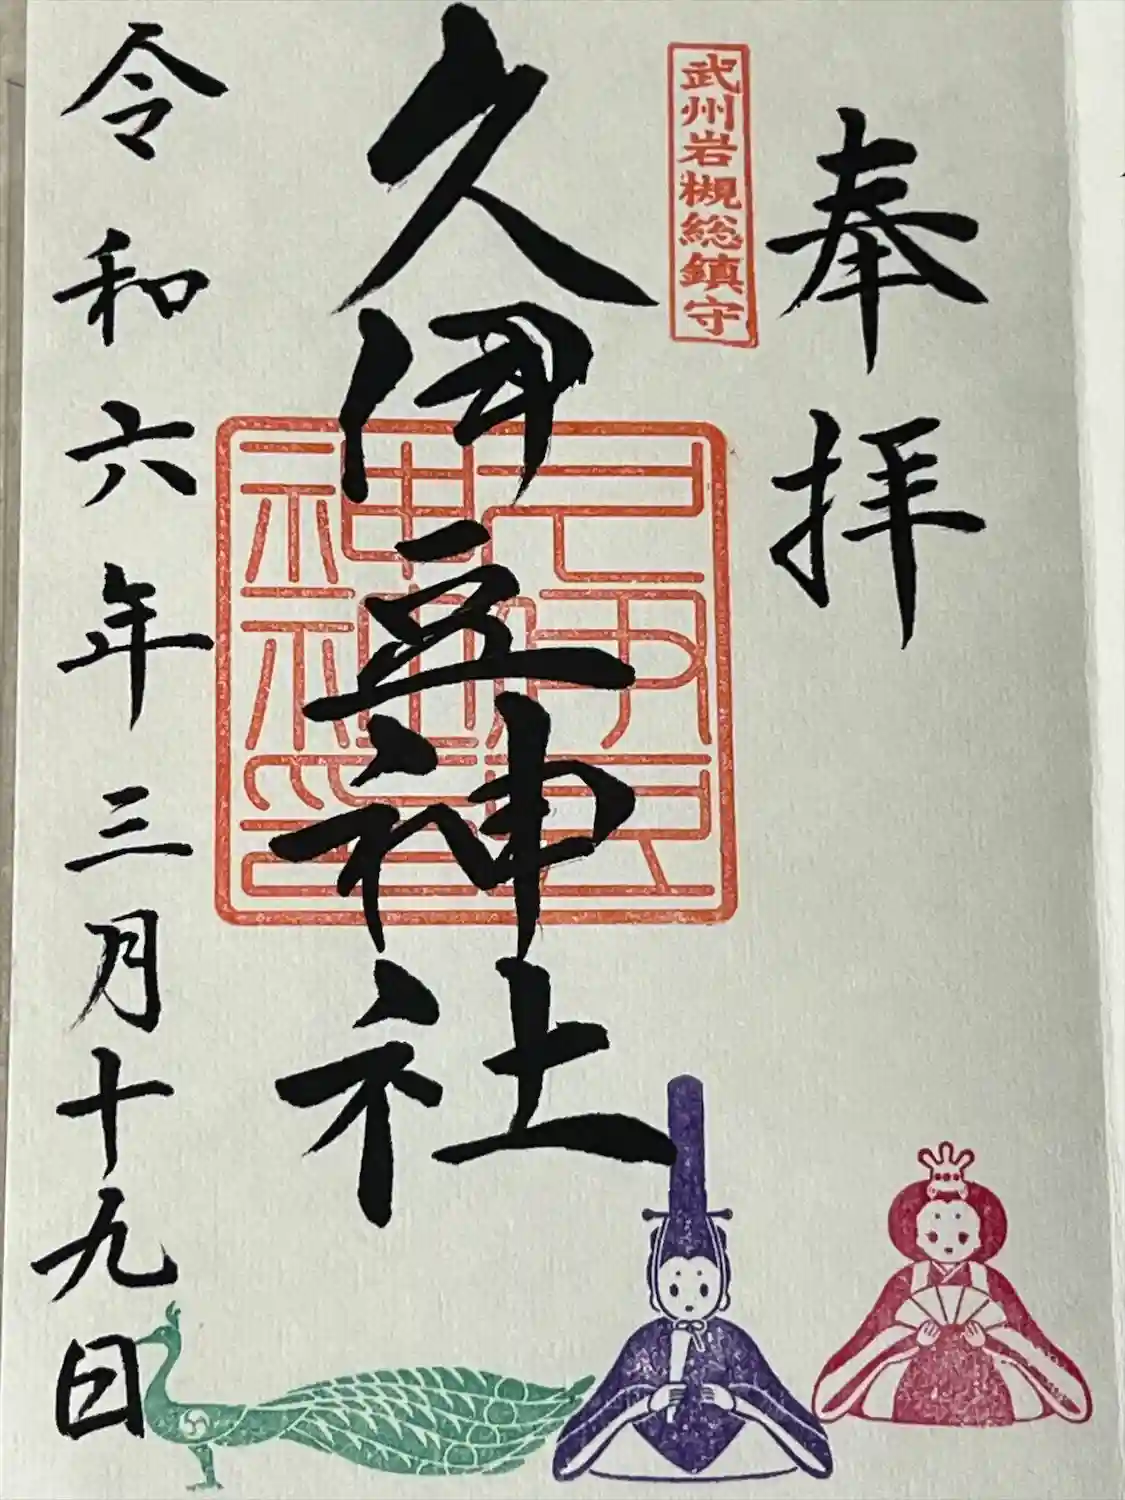 奉拝
武州岩槻総鎮守
久伊豆神社
令和六年三月十九日